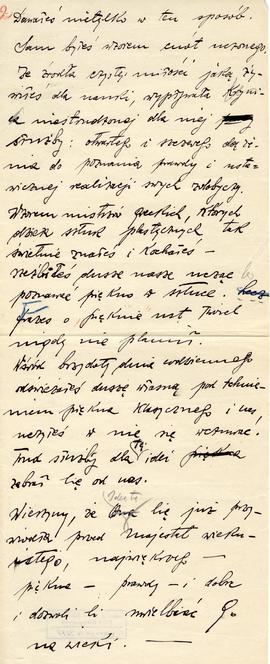 2.
Dawałeś nietylko w ten sposób.
Sam byłeś wzorem cnot uczonego.
Ze źródła czystej miłości jaką ży-
wiłeś dla nauki, wypływała Twoja
niestrudzonej dla niej
służby: otwartej i szczerej dąże-
nia do poznania prawdy i usta-
wicznej realizacji swych zdobyczy.
Wzorem mistrzów greckich, których
dzieła sztuk plastycznych tak
świetnie znałeś i kochałeś –
rzeźbiłeś dusze nasze ucząc
poznawać piękno w sztuce.
o piękno ust Twoich
nigdy nie plamił.
Wśród brzydoty dnia codziennego
odświeżałeś duszę własną pod tchnie-
niem piękna klasycznego i nas
uczyłeś w nie się wczuwać.
Trud służby dla tej idei piękna
zabrał Cię od nas.
Wierzymy, że Ona Cię już przy-
wiodła przed majestat wieku-
istego, największego –
piękna – prawdy – i dobra
i dozwoli Ci uwielbiać Go
na wieki. –